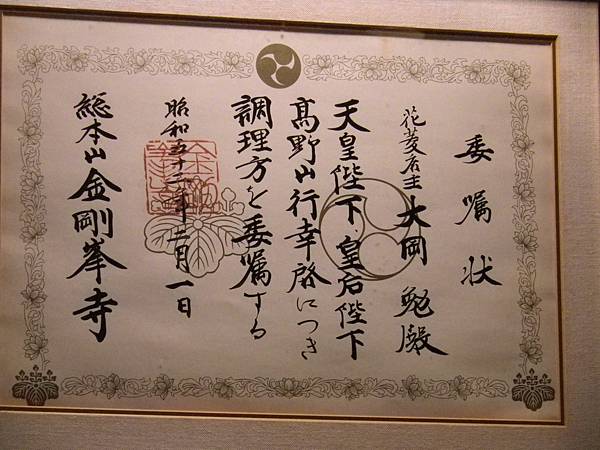 委嘱状
花菱店主 大岡 勉殿
天皇陛下皇后陛下
髙野山行幸啓につき
調理方を委嘱する
昭和五十二年二月一日
総本山金剛峯寺